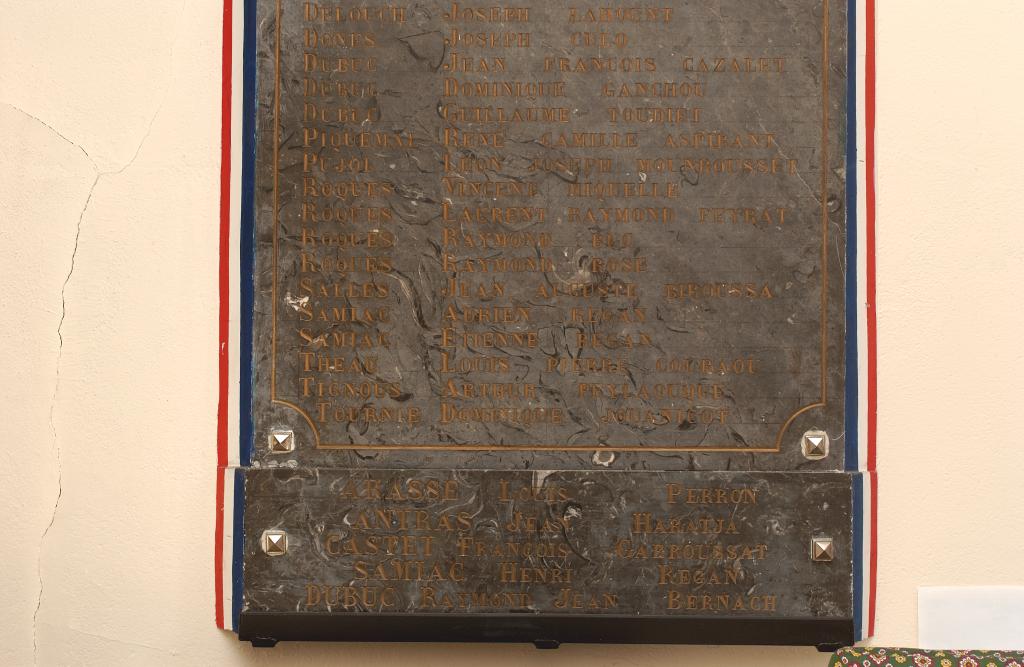 DELOUCH JOSEPH LAMOUNT
DONES JOSEPH CULO
DUBUC JEAN FRANCOIS CAZALET
DUBUC DOMINIQUE GANCHOU
DUBUC GUILLAUME TOUDIET
PIQUEMAL RENÉ CAMILLE ASPIRANT
PUJOL LÉON JOSEPH MOUNROUSSET
ROQUES VINCENT MIQUELLE
ROQUES LAURENT RAYMOND PEYRAT
ROQUES RAYMOND
ROQUES RAYMOND ROSE
SALLES JEAN AUGUSTE BIROUSSA
SAMIAC ADRIEN REGAN
SAMIAC ETIENNE REGAN
THEAU LOUIS PIERRE COURAOU
TIGNOUS ARTHUR
TOURNIE DOMINIQUE JOUANICOT
ARASSE LOUIS PERRON
ANTRAS JEAN HARATJA
CASTET FRANÇOIS GARROUSSAT
SAMIAC HENRI REGAN
DUBUC RAYMOND JEAN BERNACH